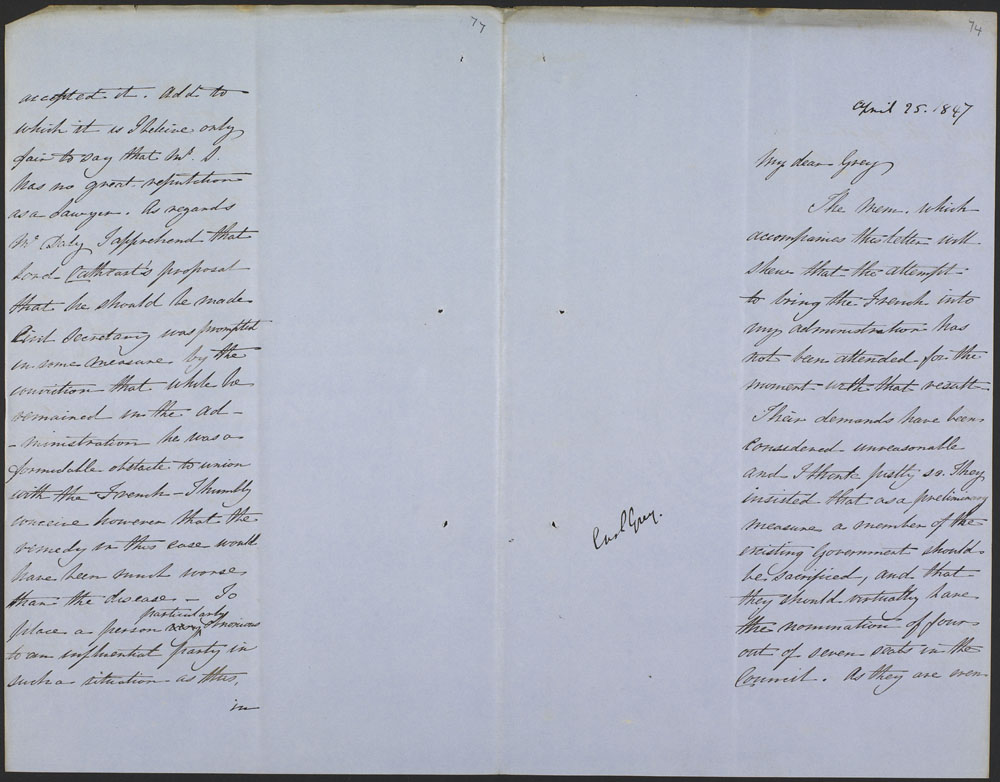 77
accepted it. Add to
which it is I beleive only
fair to say that Mr. S.
has no great reputation
as a Lawyer. As regards
Mr Daly I apprehend that
Lord Cathcart's proposal
that he should be made
Civil Secretary was prompted
in some measure by the
conviction that while he
remained in the ad-
-ministration he was a
formidable obstacle to union
with the French - I humbly
conceive however that the
remedy in this case would
have been much worse
than the disease - To
place a person particularly obnoxious
to an influential party in
such a situation as this,
in
74
April 25. 1847
My dear Grey
The Mem. which
accompanies this letter will
shew that the attempt
to bring the French into
my administration has
not been attended for the
moment with that result.
Their demands have been
considered unreasonable
and I think justly so. They
insisted that as a preliminary
measure a member of the
existing Government should
be sacrificed, and that
they should virtually have
the nomination of four
out of seven seats in the
Council. As they are even
Earl Grey.